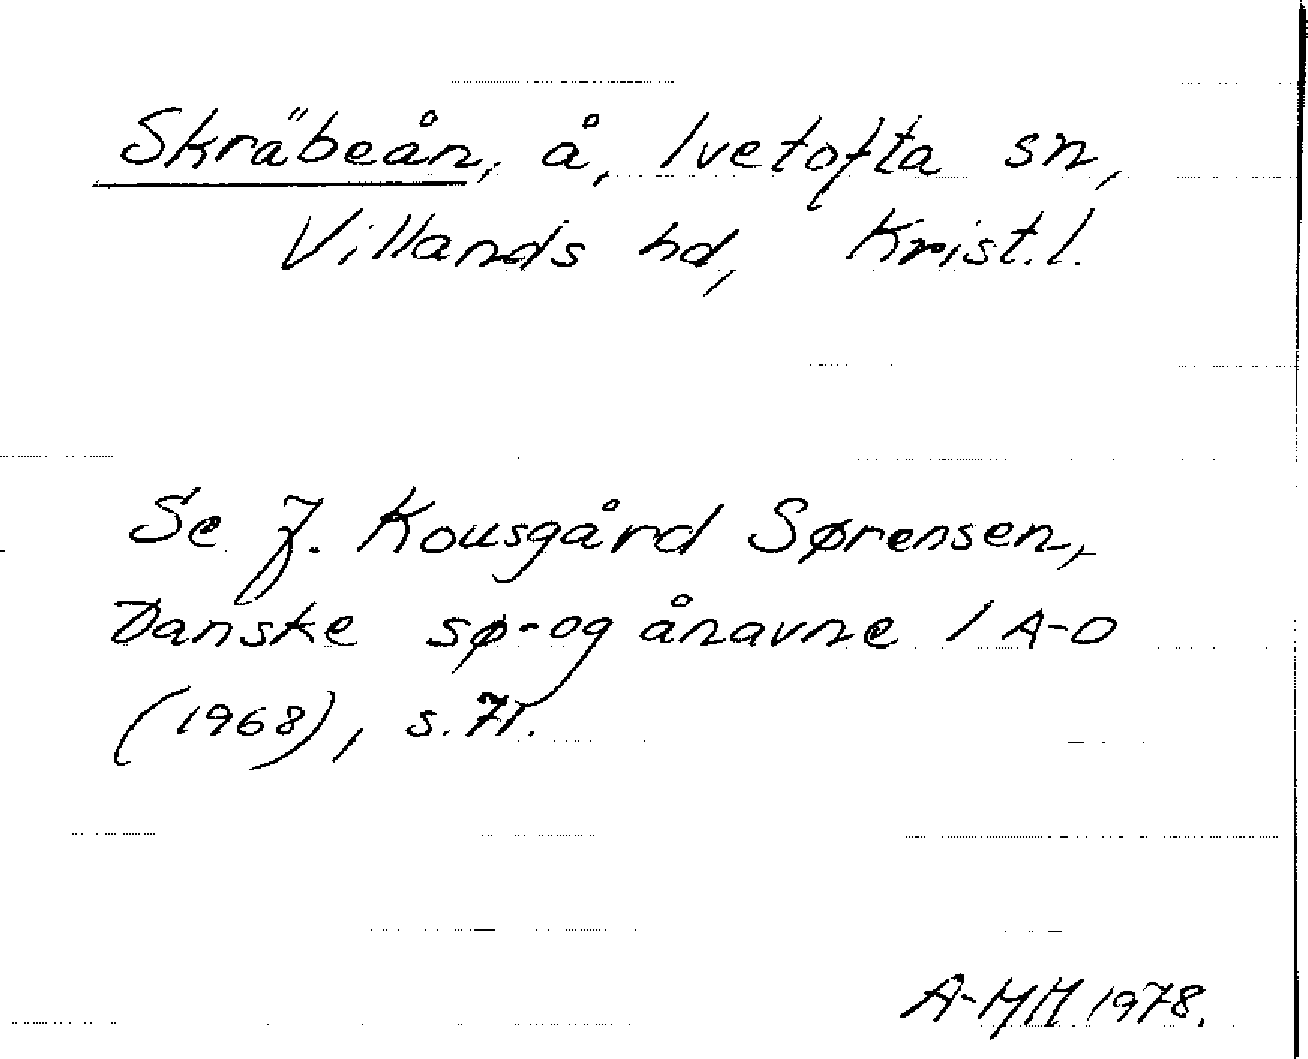 Skräbeån, å, Ivetofta sn,
Villands hd, Krist.l.
Se J. Kousgård Sørensen,
Danske sø- og ånavne I A-O
(1968), s. 71.
A-MH 1978.